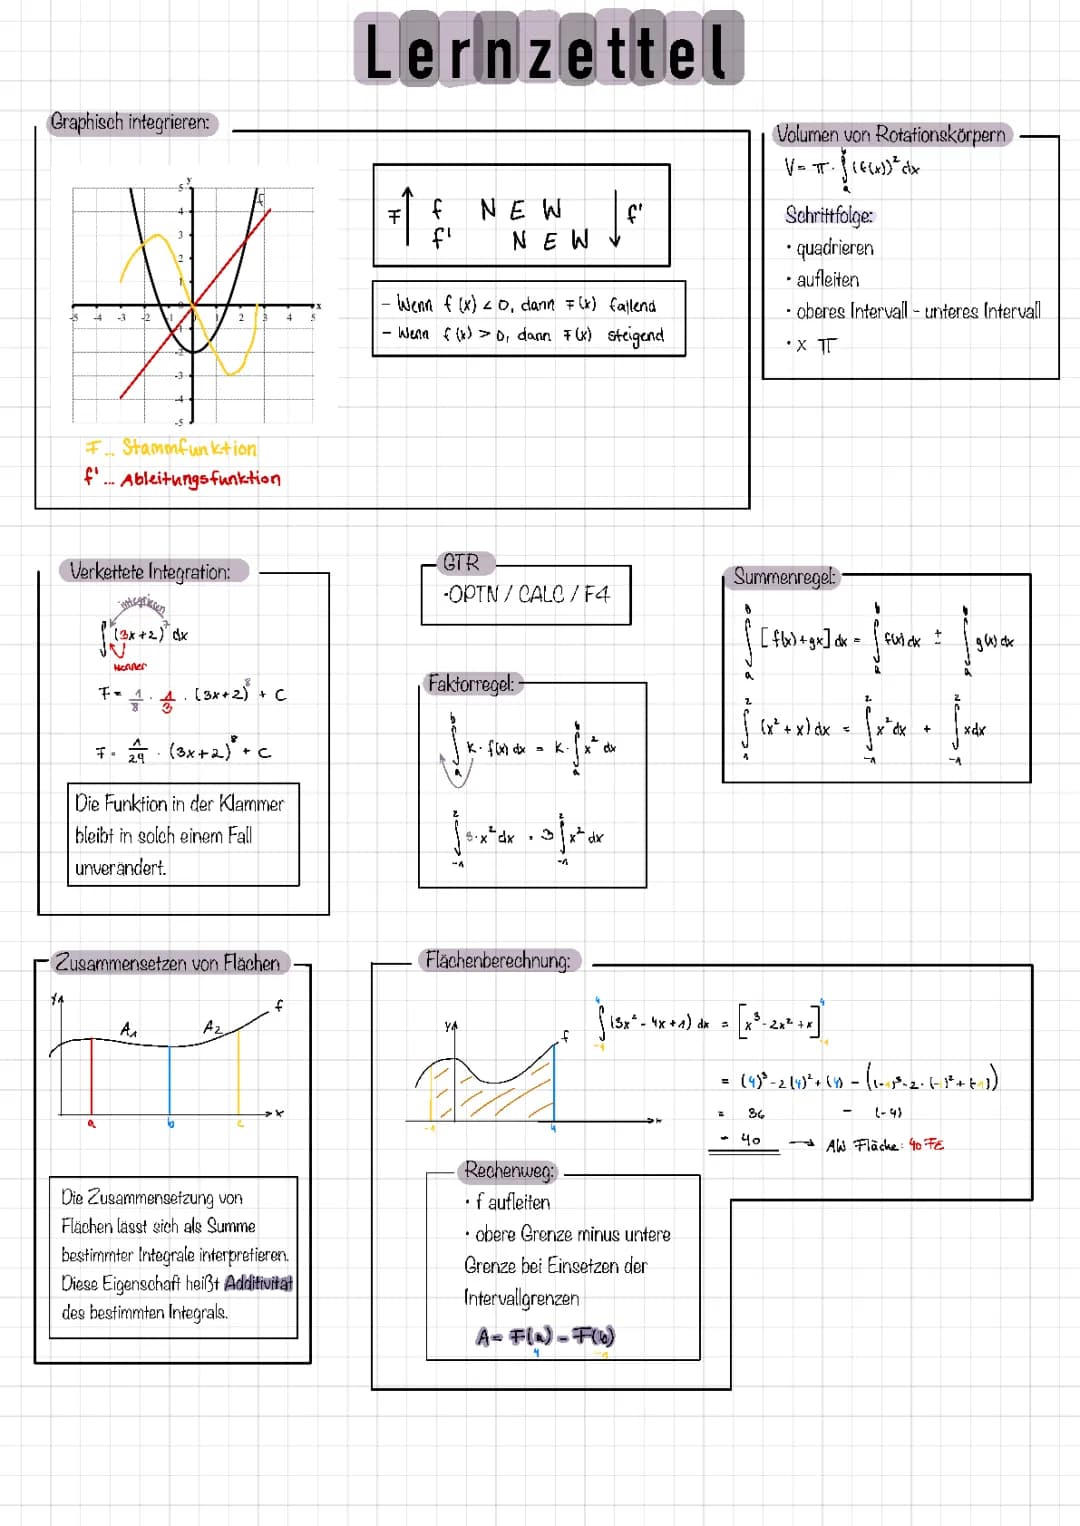 Lernzettel
Graphisch integrieren:
F f N E W f'
f' N E W
- Wenn f(x) < 0, dann F(x) fallend
- Wenn f(x) > 0, dann F(x) steigend
F... Stammfunktion
f'... Ableitungsfunktion
Volumen von Rotationskörpern
V = π · ∫ₐᵇ (f(x))² dx
Schrittfolge:
• quadrieren
• aufleiten
• oberes Intervall - unteres Intervall
• x π
Verkettete Integration:
integrieren
∫ (3x+2)⁷ dx
Nenner
F = 1/8 · 1/3 · (3x+2)⁸ + C
F = 1/24 · (3x+2)⁸ + C
Die Funktion in der Klammer
bleibt in solch einem Fall
unverändert.
GTR
-OPTN / CALC / F4
Faktorregel:
∫ₐᵇ k · f(x) dx = k · ∫ₐᵇ x² dx
∫₋₁² 3·x² dx = 3 ∫₋₁² x² dx
Summenregel:
∫ₐᵇ [f(x)+gx] dx = ∫ₐᵇ f(x) dx ± ∫ₐᵇ g(x) dx
∫₁² (x² + x) dx = ∫₋₁² x² dx + ∫₋₁² x dx
Zusammensetzen von Flächen
y A₁ A₂ f
a b c x
Die Zusammensetzung von
Flächen lässt sich als Summe
bestimmter Integrale interpretieren.
Diese Eigenschaft heißt Additivität
des bestimmten Integrals.
Flächenberechnung:
y f
-1 4 x
∫₋₁⁴ (3x² - 4x + 1) dx = [x³ - 2x² + x]₋₁⁴
= (4)³ - 2(4)² + (4) - ((-1)³ - 2·(-1)² + (-1))
= 36 - (-4)
= 40 → AW Fläche: 40 FE
Rechenweg:
• f aufleiten
• obere Grenze minus untere
Grenze bei Einsetzen der
Intervallgrenzen
A = F(a) - F(b)
4 -1